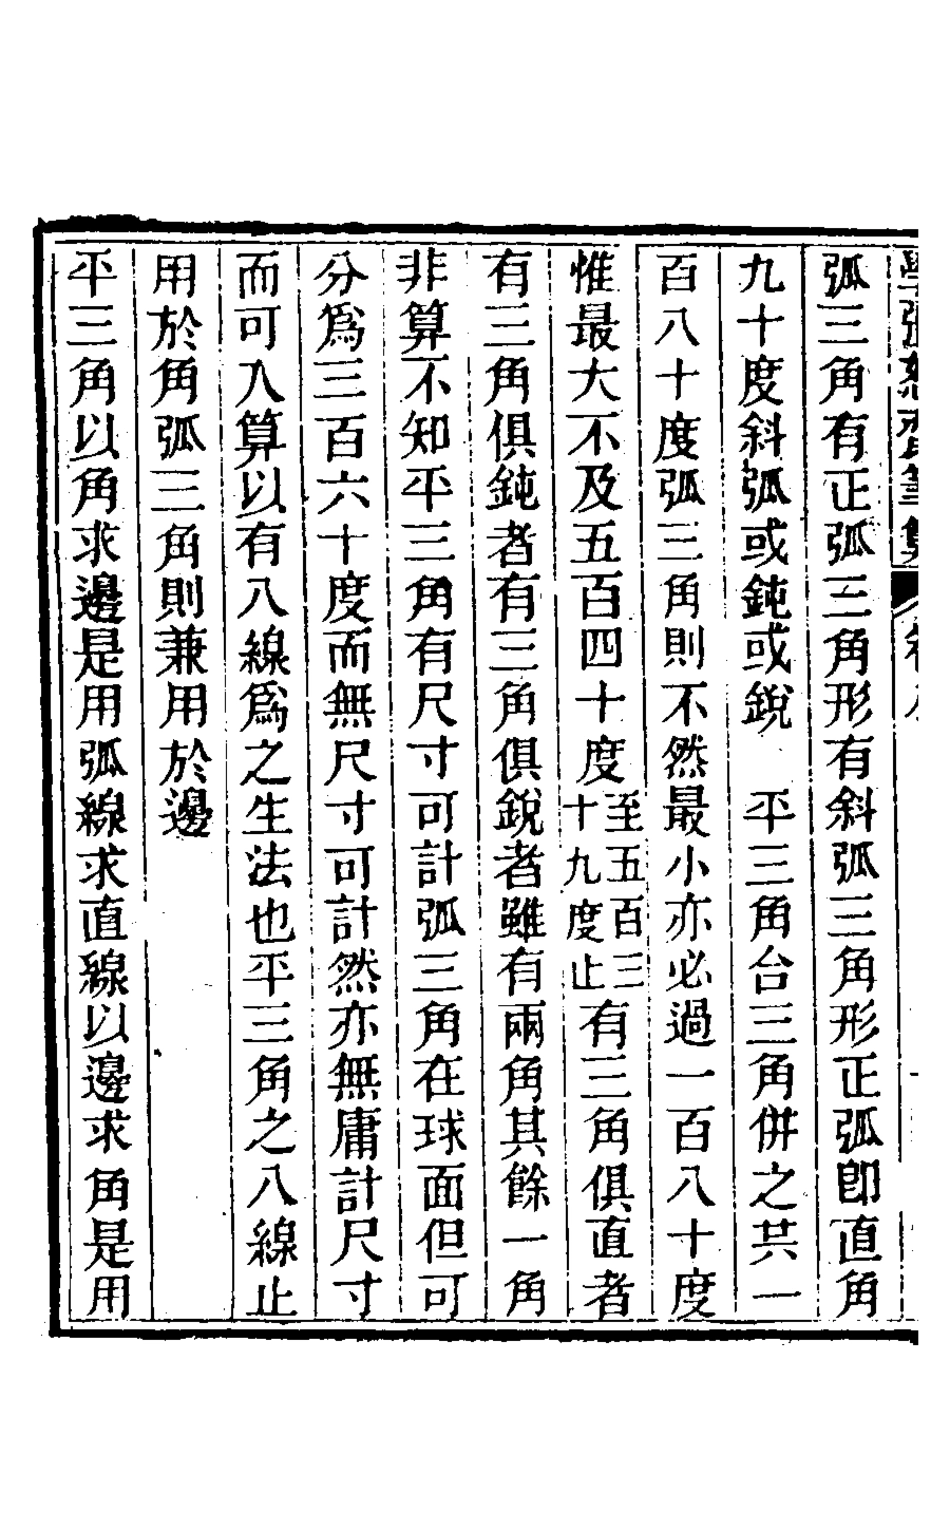 弧三角有正弧三角形有斜弧三角形正弧卽直角
九十度斜弧或鈍或銳　平三角合三角併之共一
百八十度弧三角則不然最小亦必過一百八十度
惟最大不及五百四十度至五百三十九度止有三角俱直者
有三角俱鈍者有三角俱銳者雖有兩角其餘一角
非算不知平三角有尺寸可計弧三角在球面但可
分爲三百六十度而無尺寸可計然亦無庸計尺寸
而可入算以有八線爲之生法也平三角之八線止
用於角弧三角則兼用於邊
平三角以角求邊是用弧線求直線以邊求角是用